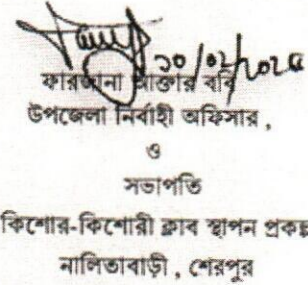 ১০/০২/২০২৫
ফারজানা আক্তার ববি
উপজেলা নির্বাহী অফিসার ,
ও
সভাপতি
কিশোর-কিশোরী ক্লাব স্থাপন প্রকল্প
নালিতাবাড়ী , শেরপুর